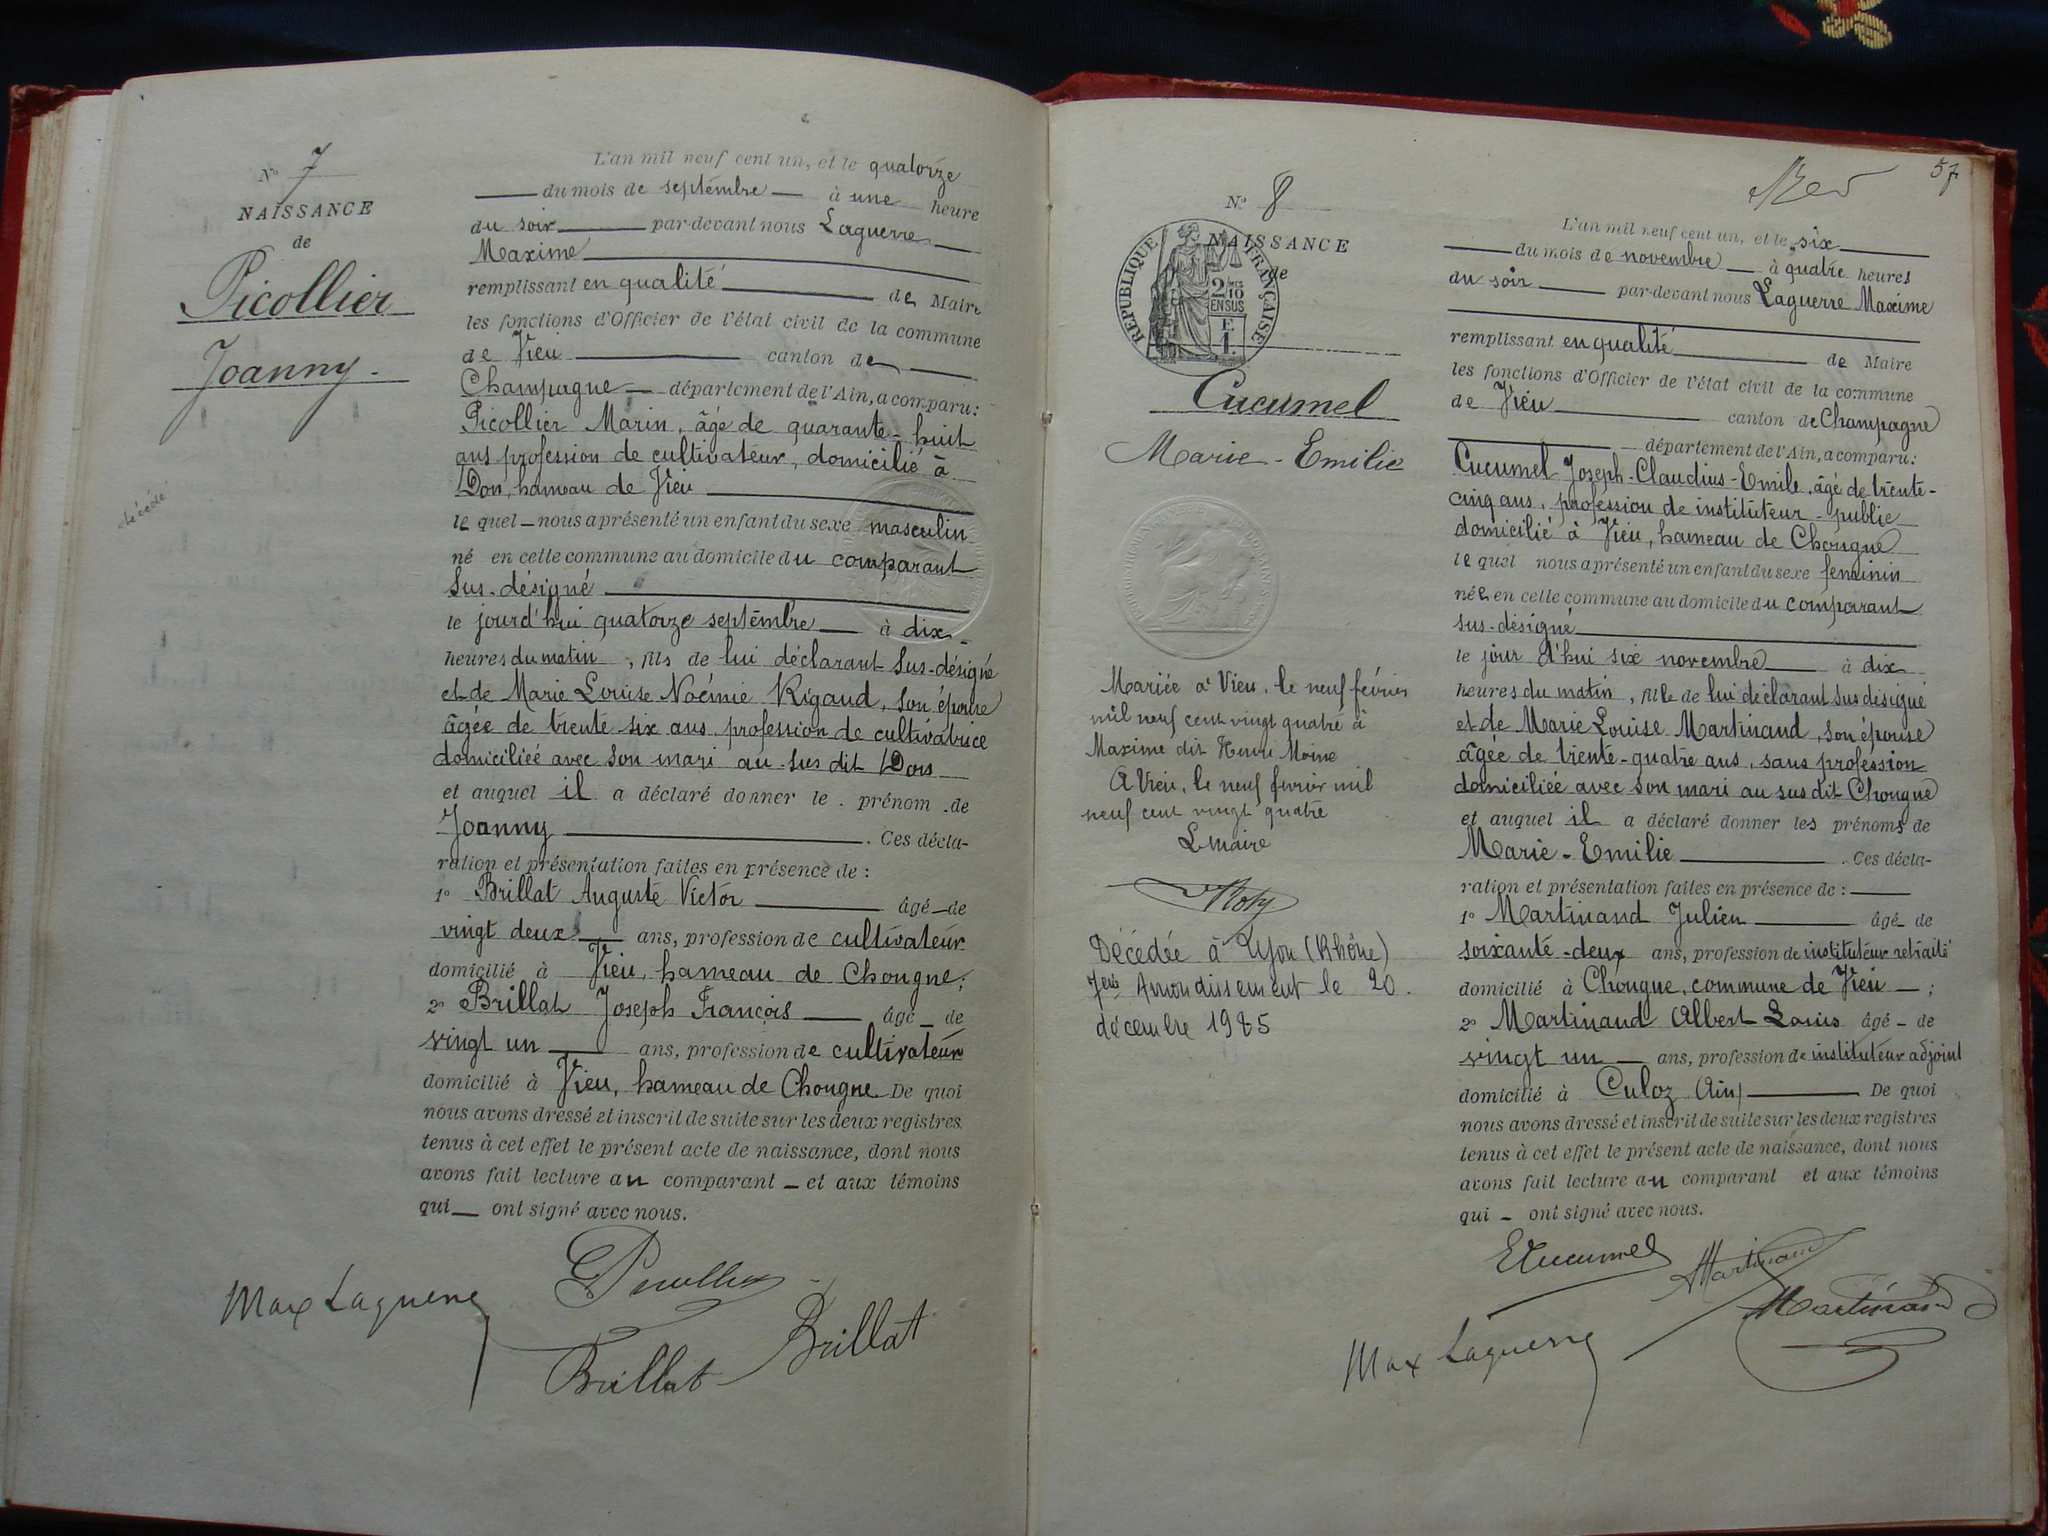 N° 7
NAISSANCE
de
Picollier
Joanny.
décédé
L'an mil neuf cent un, et le quatorze
du mois de septembre à une heure
du soir par-devant nous Laguerre
Maxime
remplissant en qualité de Maire
les fonctions d'Officier de l'état civil de la commune
de Vieu canton de
Champagne département de l'Ain, a comparu:
Picollier Marin, âgé de quarante-huit
ans profession de cultivateur, domicilié à
Don, hameau de Vieu
le quel nous a présenté un enfant du sexe masculin
né en cette commune au domicile du comparant
sus-désigné
le jourd'hui quatorze septembre à dix
heures du matin, fils de lui déclarant sus-désigné
et de Marie Louise Noémie Rigaud, son épouse
âgée de trente six ans, profession de cultivatrice
domiciliée avec son mari au sus dit Don
et auquel il a déclaré donner le prénom de
Joanny. Ces décla-
ration et présentation faites en présence de :
1° Brillat Auguste Victor âgé de
vingt deux ans, profession de cultivateur
domicilié à Vieu, hameau de Chongne;
2° Brillat Joseph François âgé de
vingt un ans, profession de cultivateur
domicilié à Vieu, hameau de Chongne. De quoi
nous avons dressé et inscrit de suite sur les deux registres
tenus à cet effet le présent acte de naissance, dont nous
avons fait lecture au comparant et aux témoins
qui ont signé avec nous.
Max Laguerre
Brillat Brillat
57
N° 8
NAISSANCE
de
RÉPUBLIQUE FRANÇAISE
2/10 EN SUS
F.
1.
Cucumel
Marie-Emilie
Mariée à Vieu, le neuf février
mil neuf cent vingt quatre à
Maxime dit Henri Moine
A Vieu, le neuf février mil
neuf cent vingt quatre
Le maire
Décédée à Lyon (Rhône)
7ème Arrondissement le 20
décembre 1985
L'an mil neuf cent un, et le six
du mois de novembre à quatre heures
du soir par-devant nous Laguerre Maxime
remplissant en qualité de Maire
les fonctions d'Officier de l'état civil de la commune
de Vieu canton de Champagne
département de l'Ain, a comparu:
Cucumel Joseph-Claudius-Emile, âgé de trente-
cinq ans, profession de instituteur-public
domicilié à Vieu, hameau de Chongne
le quel nous a présenté un enfant du sexe féminin
née en cette commune au domicile du comparrant
sus-désigné
le jour d'hui six novembre à dix
heures du matin, fille de lui déclarant sus désigné
et de Marie Louise Martinand, son épouse
âgée de trente-quatre ans, sans profession
domiciliée avec son mari au sus dit Chongne
et auquel il a déclaré donner les prénoms de
Marie-Emilie. Ces décla-
ration et présentation faites en présence de :
1° Martinand Julien âgé de
soixante-deux ans, profession de instituteur retraité
domicilié à Chongne, commune de Vieu ;
2° Martinand Albert Louis âgé de
vingt un ans, profession de instituteur adjoint
domicilié à Culoz (Ain) De quoi
nous avons dressé et inscrit de suite sur les deux registres
tenus à cet effet le présent acte de naissance, dont nous
avons fait lecture au comparant et aux témoins
qui ont signé avec nous.
E Cucumel Martinand
Martinand
Max Laguerre